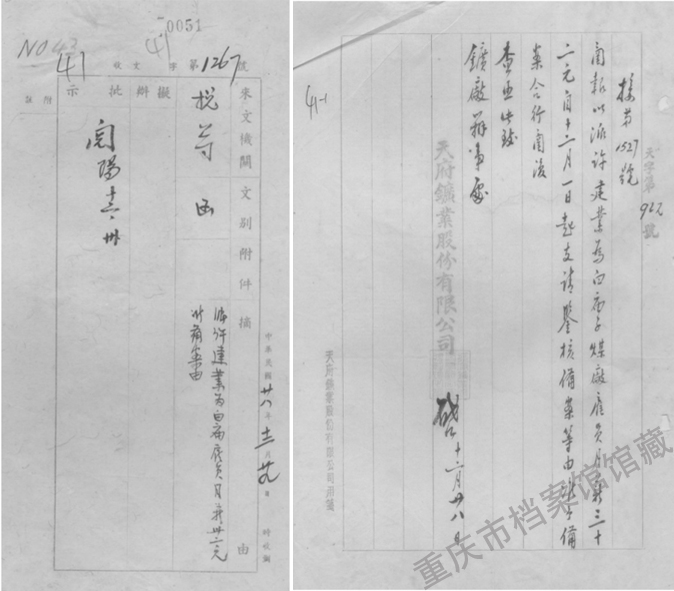 0051
NO 43
41
收文 字第1267號
來文機關
文別
附件
摘
由
擬辦
批示
附註
函
派許建業為白廟雇員月薪卅二元
中華民國廿八年十二月廿九日 時收編
天字第927號
接第1527號
函報以派許建業為白廟子煤廠雇員月薪三十
二元自十二月一日起支請鑒核備案等由准予備
案合行函復
查照此致
鑛廠辦事處
天府鑛業股份有限公司
啟 十二月廿八日
天府鑛業股份有限公司用箋
41-1
重庆市档案馆馆藏